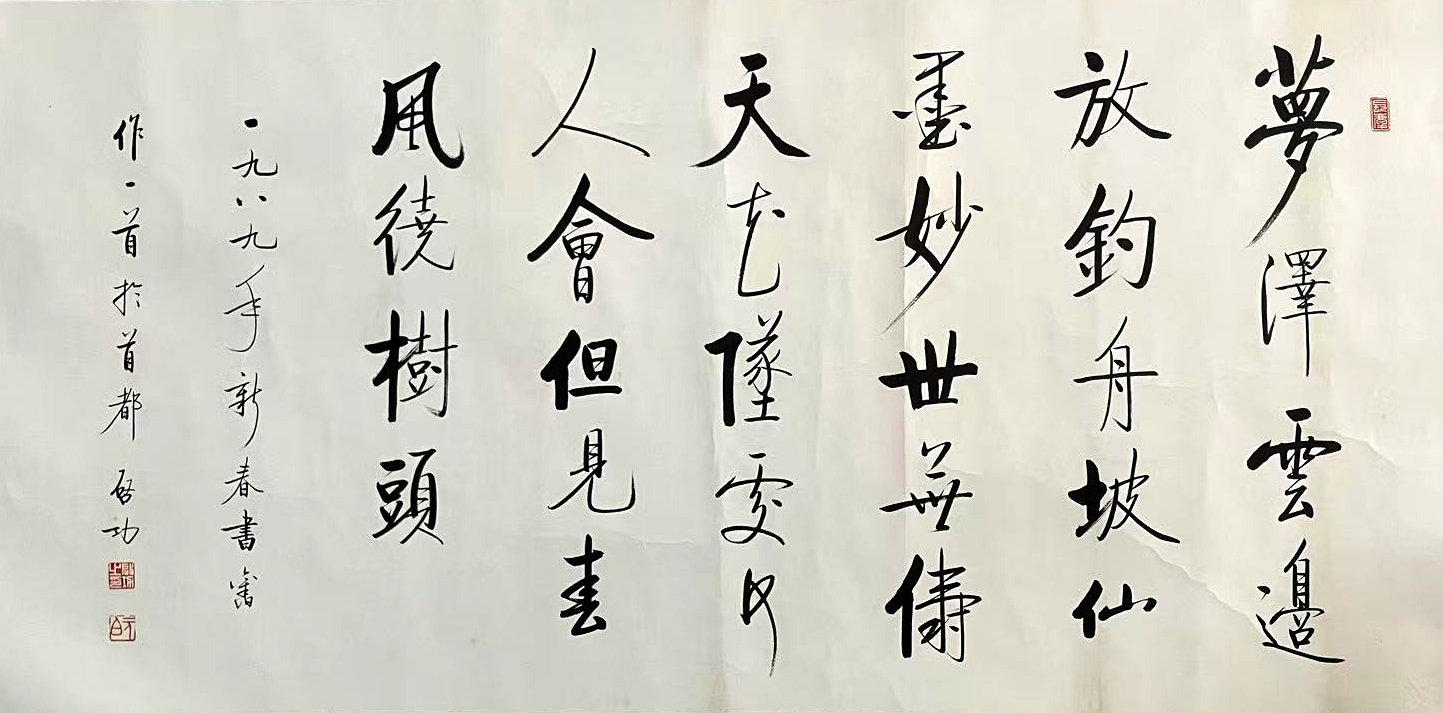 夢澤雲邊
放釣舟坡仙
墨妙世無儔
天花墜處何
人會但見春
風繞樹頭
一九八九年新春書舊
作一首於首都 启功
元白